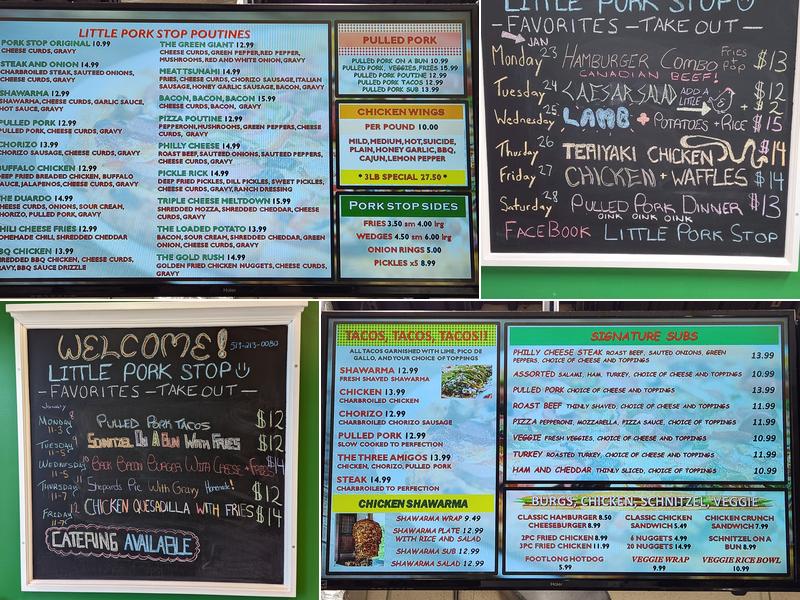 LITTLE PORK STOP POUTINES
PORK STOP ORIGINAL 10.99
CHEESE CURDS, GRAVY
STEAK AND ONION 14.99
CHARBROILED STEAK, SAUTEED ONIONS,
CHEESE CURDS, GRAVY
SHAWARMA 12.99
SHAWARMA, CHEESE CURDS, GARLIC SAUCE,
HOT SAUCE, GRAVY
PULLED PORK 12.99
PULLED PORK, CHEESE CURDS, GRAVY
CHORIZO 13.99
CHORIZO SAUSAGE, CHEESE CURDS, GRAVY
BUFFALO CHICKEN 12.99
DEEP FRIED BREADED CHICKEN, BUFFALO
SAUCE, JALAPENOS, CHEESE CURDS, GRAVY
THE DUARDO 14.99
CHEESE CURDS, ONIONS, SOUR CREAM,
CHORIZO, PULLED PORK, GRAVY
CHILI CHEESE FRIES 12.99
HOMEMADE CHILI, SHREDDED CHEDDAR
BBQ CHICKEN 13.99
SHREDDED BBQ CHICKEN, CHEESE CURDS,
GRAVY, BBQ SAUCE DRIZZLE
THE GREEN GIANT 12.99
CHEESE CURDS, GREEN PEPPER, RED PEPPER,
MUSHROOMS, RED AND WHITE ONION, GRAVY
MEAT TSUNAMI 14.99
FRIES, CHEESE CURDS, CHORIZO SAUSAGE, ITALIAN
SAUSAGE, HONEY GARLIC SAUSAGE, BACON, GRAVY
BACON, BACON, BACON 15.99
CHEESE CURDS, BACON, GRAVY
PIZZA POUTINE 12.99
PEPPERONI, MUSHROOMS, GREEN PEPPERS, CHEESE
CURDS, GRAVY
PHILLY CHEESE 14.99
ROAST BEEF, SAUTEED ONIONS, SAUTEED PEPPERS,
CHEESE CURDS, GRAVY
PICKLE RICK 14.99
DEEP FRIED PICKLES, DILL PICKLES, SWEET PICKLES,
CHEESE CURDS, GRAVY, RANCH DRESSING
TRIPLE CHEESE MELTDOWN 15.99
SHREDDED MOZZA, SHREDDED CHEDDAR, CHEESE
CURDS, GRAVY
THE LOADED POTATO 13.99
BACON, SOUR CREAM, SHREDDED CHEDDAR, GREEN
ONION, CHEESE CURDS, GRAVY
THE GOLD RUSH 14.99
GOLDEN FRIED CHICKEN NUGGETS, CHEESE CURDS,
GRAVY
PULLED PORK
PULLED PORK ON A BUN 10.99
PULLED PORK, VEGGIES, FRIES 15.99
PULLED PORK POUTINE 12.99
PULLED PORK TACOS 12.99
PULLED PORK SUB 13.99
CHICKEN WINGS
PER POUND 10.00
MILD, MEDIUM, HOT, SUICIDE,
PLAIN, HONEY GARLIC, BBQ,
CAJUN, LEMON PEPPER
* 3LB SPECIAL 27.50 *
PORK STOP SIDES
FRIES 3.50 sm 4.00 lrg
WEDGES 4.50 sm 6.00 lrg
ONION RINGS 5.00
PICKLES x5 8.99
Haier
LITTLE PORK STOP
-FAVORITES -TAKE OUT-
JAN
Monday 23 HAMBURGER COMBO Fries + pop $13
CANADIAN BEEF!
Tuesday 24 CAESAR SALAD ADD A LITTLE $12
+ $2
Wednesday 25 LAMB + POTATOES + RICE $15
Thursday 26 TERIYAKI CHICKEN $14
Friday 27 CHICKEN + WAFFLES $14
Saturday 28 PULLED PORK DINNER $13
OINK OINK OINK
FACEBOOK LITTLE PORK STOP
WELCOME! 519-213-0080
LITTLE PORK STOP
-FAVORITES -TAKE OUT-
January
MONDAY 8 11-3 PULLED PORK TACOS $12
TUESDAY 9 11-5 SCHNITZEL ON A BUN WITH FRIES $12
WEDNESDAY 10 11-5 BACK BACON BURGER WITH CHEESE + FRIES! $14
THURSDAY 11 11-7 Shepards Pie With Gravy Homemade! $12
FRIDAY 12 11-7 CHICKEN QUESADILLA WITH FRIES $14
CATERING AVAILABLE
TACOS, TACOS, TACOS!!
ALL TACOS GARNISHED WITH LIME, PICO DE
GALLO, AND YOUR CHOICE OF TOPPINGS
SHAWARMA 12.99
FRESH SHAVED SHAWARMA
CHICKEN 13.99
CHARBROILED CHICKEN
CHORIZO 12.99
CHARBROILED CHORIZO SAUSAGE
PULLED PORK 12.99
SLOW COOKED TO PERFECTION
THE THREE AMIGOS 13.99
CHICKEN, CHORIZO, PULLED PORK
STEAK 14.99
CHARBROILED TO PERFECTION
CHICKEN SHAWARMA
SHAWARMA WRAP 9.49
SHAWARMA PLATE 12.99
WITH RICE AND SALAD
SHAWARMA SUB 12.99
SHAWARMA SALAD 12.99
SIGNATURE SUBS
PHILLY CHEESE STEAK ROAST BEEF, SAUTED ONIONS, GREEN
PEPPERS, CHOICE OF CHEESE AND TOPPINGS 13.99
ASSORTED SALAMI, HAM, TURKEY, CHOICE OF CHEESE AND TOPPINGS 10.99
PULLED PORK CHOICE OF CHEESE AND TOPPINGS 13.99
ROAST BEEF THINLY SHAVED, CHOICE OF CHEESE AND TOPPINGS 11.99
PIZZA PEPPERONI, MOZZARELLA, PIZZA SAUCE, CHOICE OF TOPPINGS 11.99
VEGGIE FRESH VEGGIES, CHOICE OF CHEESE AND TOPPINGS 10.99
TURKEY ROASTED TURKEY, CHOICE OF CHEESE AND TOPPINGS 11.99
HAM AND CHEDDAR THINLY SLICED, CHOICE OF TOPPINGS 10.99
BURGS, CHICKEN, SCHNITZEL, VEGGIE
CLASSIC HAMBURGER 8.50
CHEESEBURGER 8.99
CLASSIC CHICKEN
SANDWICH 5.49
CHICKEN CRUNCH
SANDWICH 7.99
2PC FRIED CHICKEN 8.99
3PC FRIED CHICKEN 11.99
6 NUGGETS 4.99
20 NUGGETS 14.99
SCHNITZEL ON A
BUN 8.99
FOOTLONG HOTDOG
5.99
VEGGIE WRAP
9.99
VEGGIE RICE BOWL
10.99
Haier